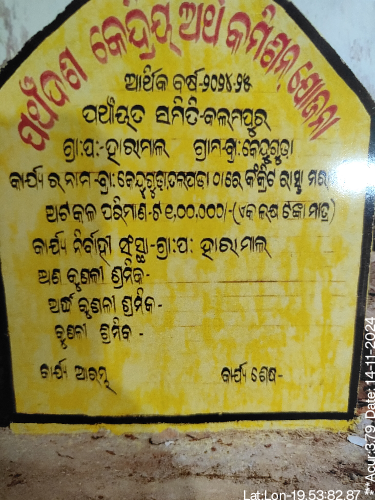 ପଞ୍ଚଦଶ କେନ୍ଦ୍ରିୟ ଅର୍ଥ କମିଶନ ଯୋଜନା
ଆର୍ଥିକ ବର୍ଷ-୨୦୨୪-୨୫
ପଞ୍ଚାୟତ ସମିତି-କଲମପୁର
ଗ୍ରା:ପ:-ହାରାମାଲ ଗ୍ରାମ-ଗ୍ରା:କେନ୍ଦୁଗୁଡ଼ା
କାର୍ଯ୍ୟ ର ନାମ-ଗ୍ରା:କେନ୍ଦୁଗୁଡ଼ାତଳପଡା ଠାରେ କଂକ୍ରିଟ ରାସ୍ତା
ଅଟକଳ ପରିମାଣ-ଟ ୧,୦୦,୦୦୦/-(ଏକ ଲକ୍ଷ ଟଙ୍କା ମାତ୍ର)
କାର୍ଯ୍ୟ ନିର୍ବାହୀ ସଂସ୍ଥା-ଗ୍ରା:ପ: ହାରାମାଲ୍
ଅଣ କୁଶଳୀ ଶ୍ରମିକ-
ଅର୍ଦ୍ଧ କୁଶଳୀ ଶ୍ରମିକ-
କୁଶଳୀ ଶ୍ରମିକ -
କାର୍ଯ୍ୟ ଆରମ୍ଭ କାର୍ଯ୍ୟ ଶେଷ-
Lat:Lon-19.53:82.87
**Acur:3.79, Date: 14-11-2024